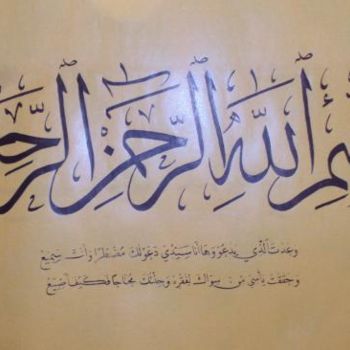 سم الله الرحمن الرحـ
وعدت الذي يدعو وها انا سيدي دعوتك مضطرا وأنت سميع
وحققت يأسي من سواك لفقره وجئتك محتاجا فكيف أضيع